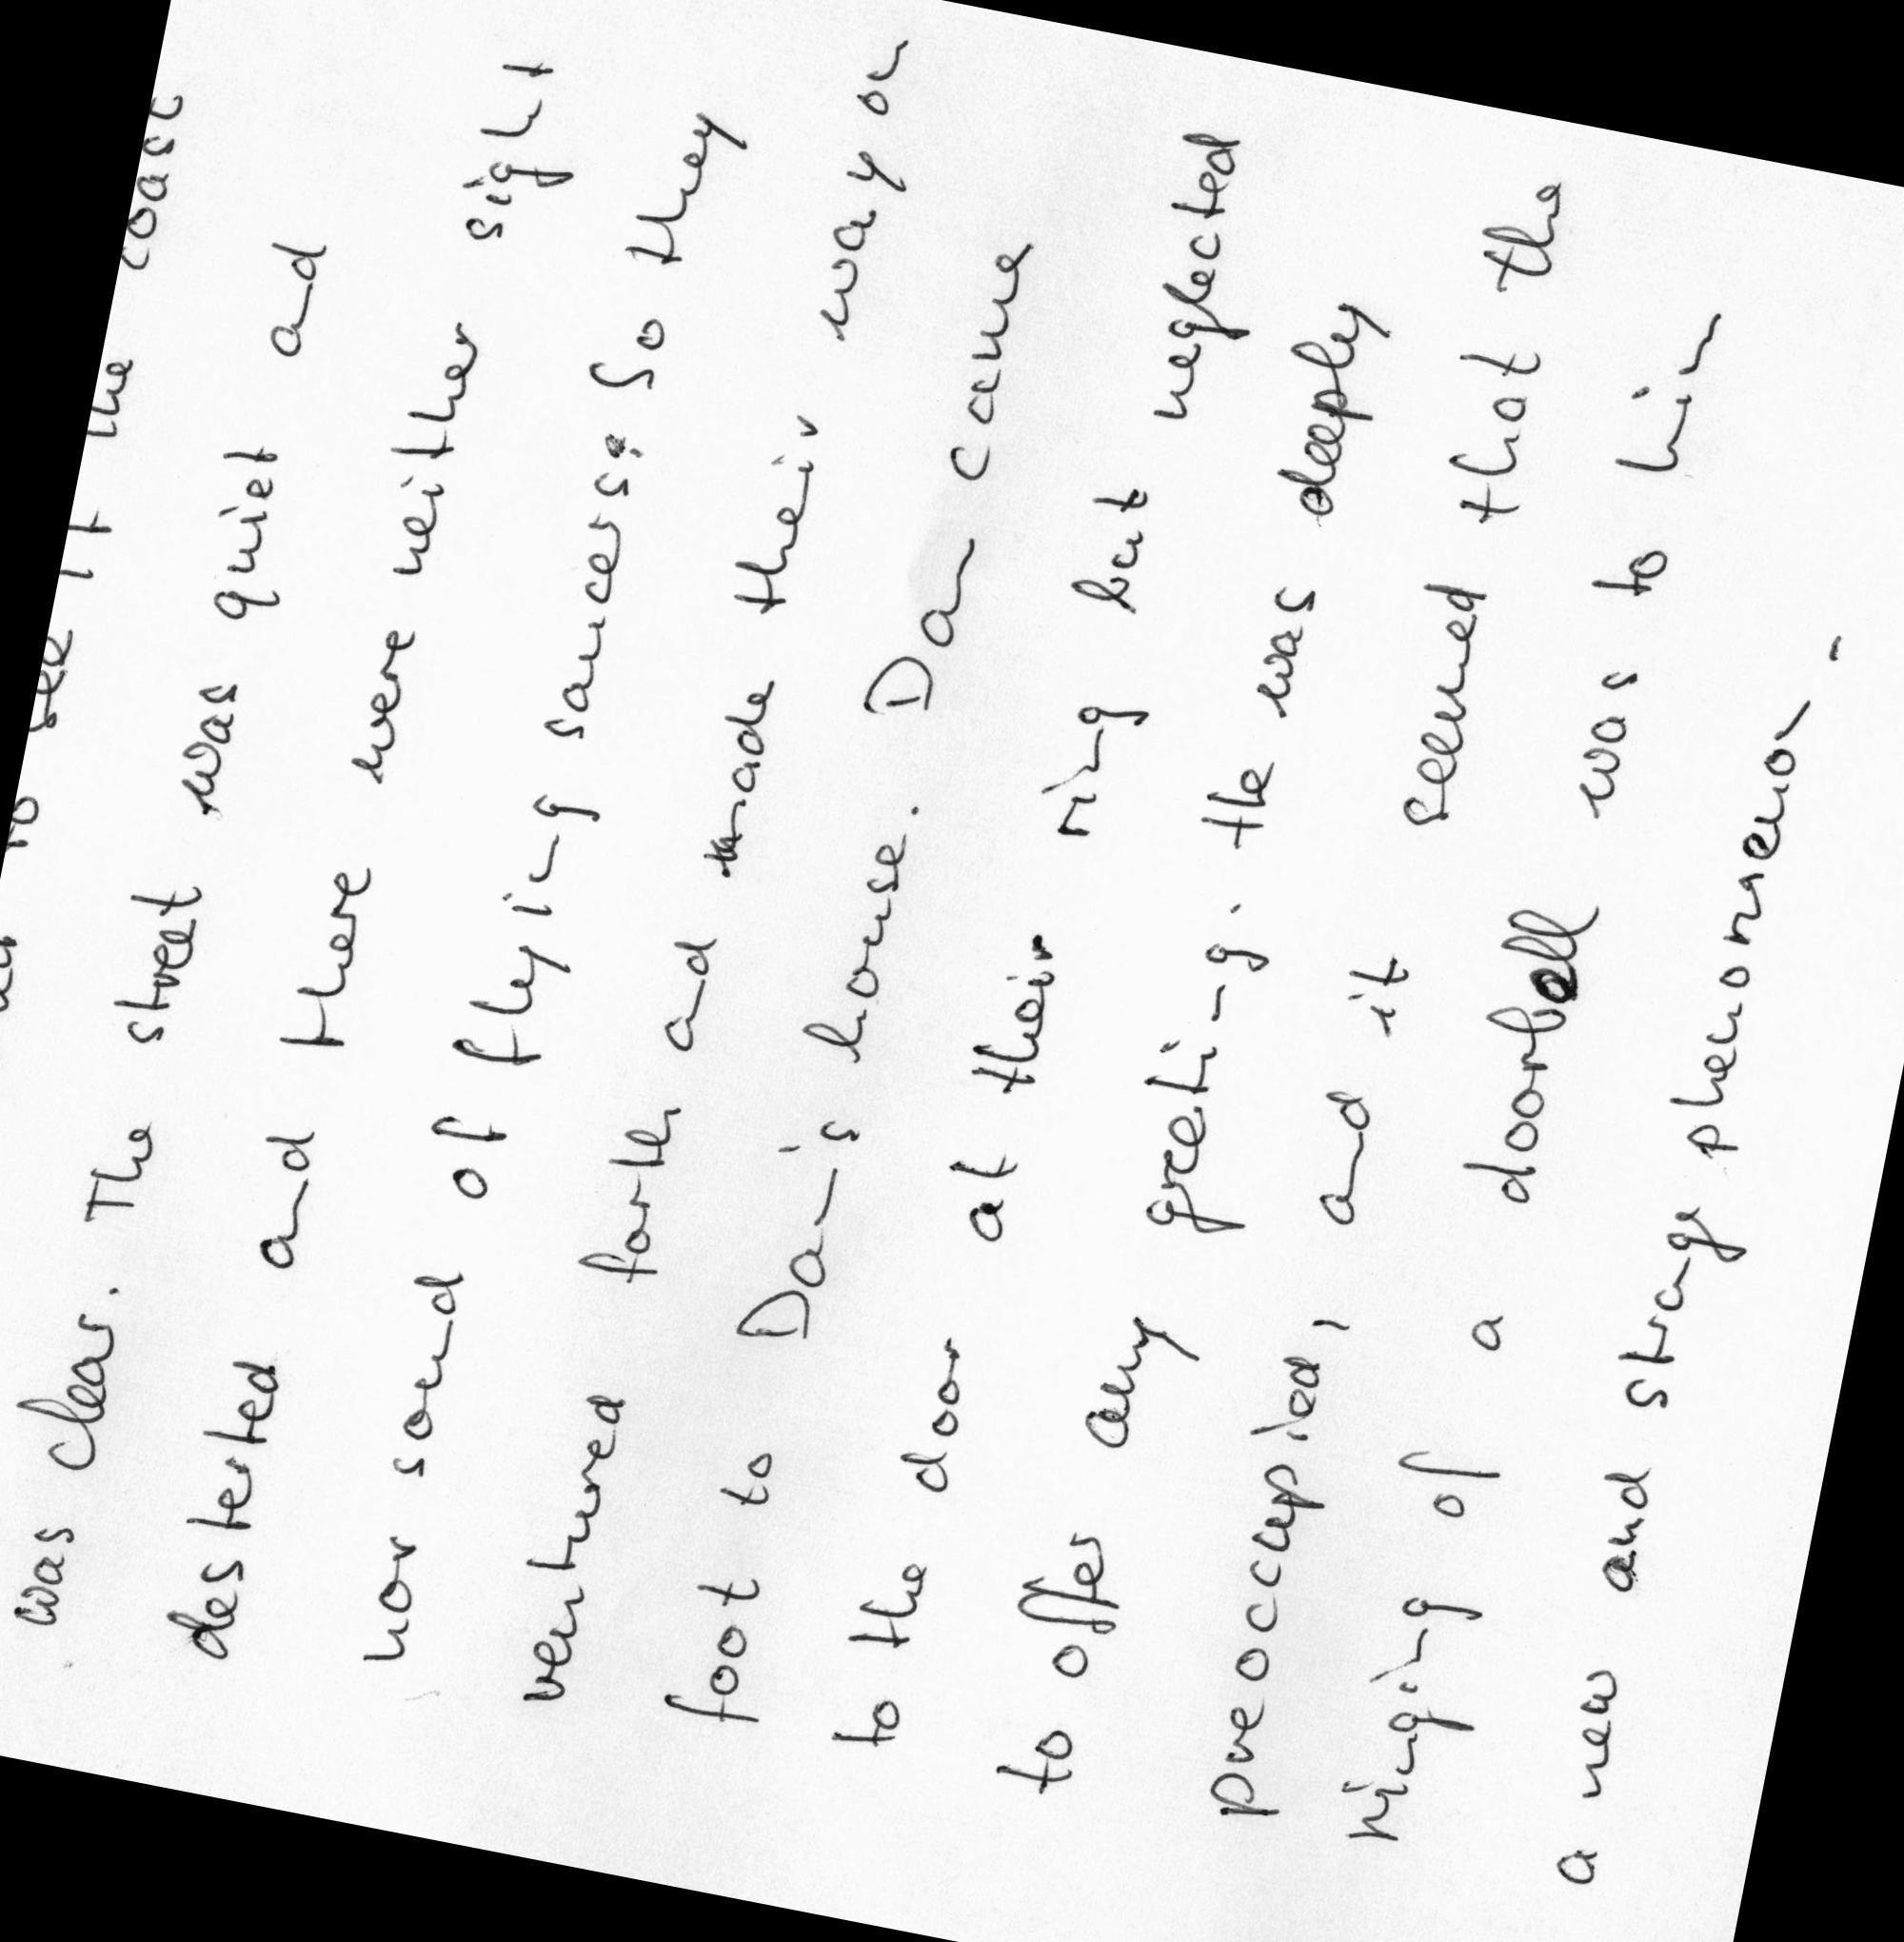 to see if the coast
was clear. The street was quiet and
deserted and there were neither sight
nor sound of flying saucers. So they
ventured forth and made their way on
foot to Dan's house. Dan came
to the door at their ring but neglected
to offer any greeting. He was deeply
preoccupied, and it seemed that the
ringing of a doorbell was to him
a new and strange phenomenon.